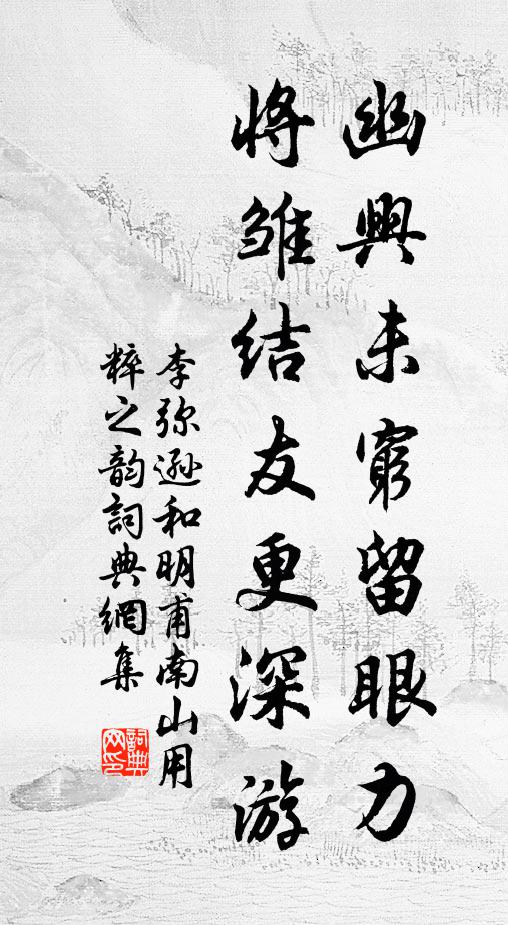 幽興未窮留眼力
將雛結友更深游
李弥遜和明甫南山用
粹之韵詞典網集
詞典
网印